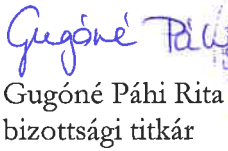 Gugóné Páhi
Gugóné Páhi Rita
bizottsági titkár